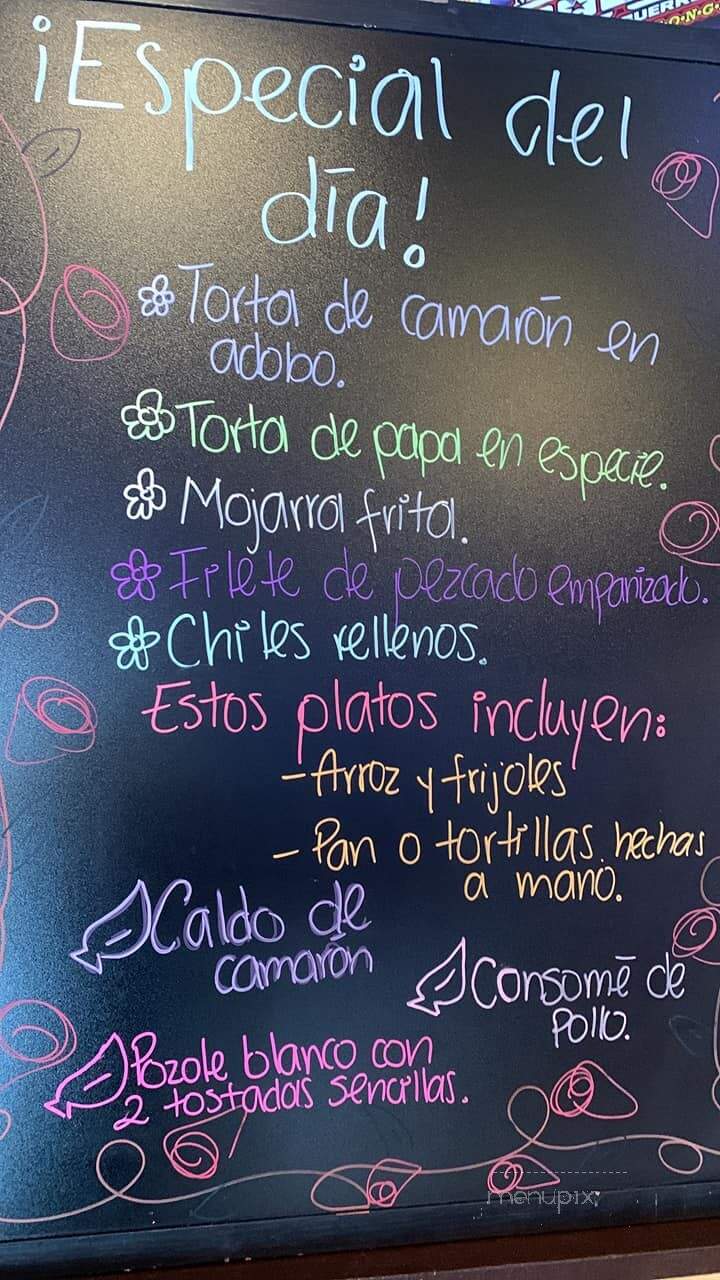 ¡Especial del
día!
Torta de camarón en
adobo.
Torta de papa en especie.
Mojarra frita.
Filete de pezcado empanizado.
Chiles rellenos.
Estos platos incluyen:
- Arroz y frijoles
- Pan o tortillas hechas
a mano.
Caldo de
camarón
Consomé de
Pollo.
Pozole blanco con
2 tostadas sencillas.
menupix